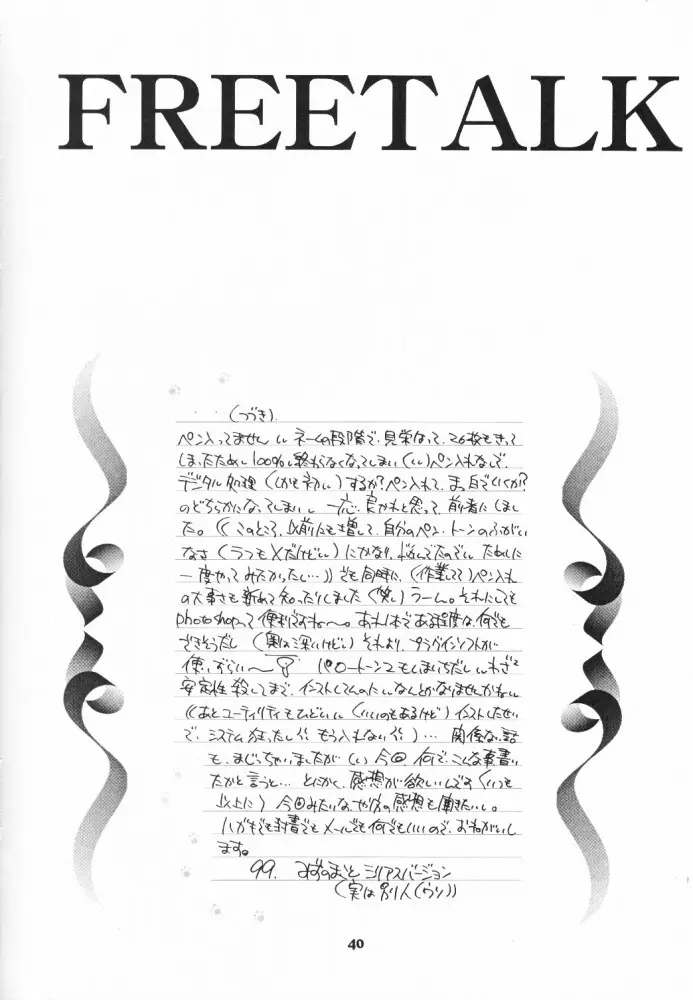 FREETALK
・・(つづき)
ペン入ってません ネームの段階で、見栄はって、26枚もきって
しまったために100%終わらなくなってしまい(い)ペン入れなしで
デジタル処理(しかも初)するか?ペン入れて、まっ白でいくか?
のどちらかになってしまい 一応、良かれと思って、前者にしまし
た。((このところ、以前にも増して、自分のペン・トーンのふがい
なさ(うつもメだけど)にかなり、悩んでたので ために
一度やってみたかったし…))でも同時に、(作業してて)ペン入れ
の大事さも新めて知ったりしました(笑)うーん。それにしても
photoshopって便利ですね〜。あれ1本である程度な何でも
できそうだし(奥は深いけど)それより、プラグインソフトが
使いづらい〜 パワートーン2もしまいちだし わざと
安定性殺してまで、インストしてんのにな なんとかなりませんかね
((あとユーティリティもひどい(いいのもあるけど)インストしたせい
で、システム狂ったし もう入れない)… 関係ない話
も、まじっちゃいましたが(い)今回何で、こんな事書い
たかと言うと… とにかく、感想が欲しいんです(いつも
以上に)今回みたいなやり方の感想も聞きたいし。
ハガキでも封書でもメールでも何でもいいので、おねがいし
ます。
99. みずのまこと シリアスバージョン
(実は別人(ウソ))
40